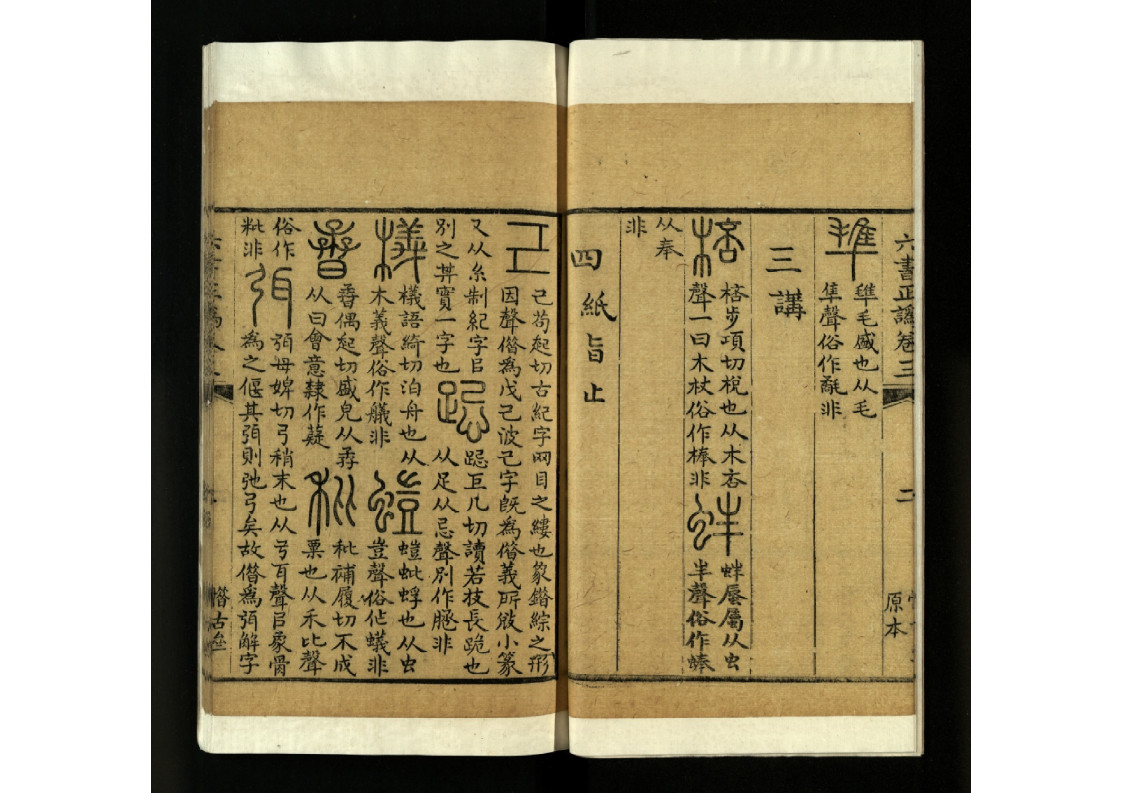 六書正譌卷三
二
原本
毴毛盛也从毛
隼聲俗作氄非
三講
棓棓步項切梲也从木咅
聲一曰木杖俗作棒非
蚌蚌蜃屬从虫
半聲俗作蜯
从奉
非
四紙旨止
己己苟起切古紀字网目之縷也象鍇綜之形
因聲借爲戊己波己字旣爲借義所敚小篆
又从糸制紀字㠯
別之其實一字也
跽跽巨几切讀若技長跪也
从足从忌聲別作䠆非
檥檥語綺切泊舟也从
木義聲俗作艤非
螘螘蚍蜉也从虫
豈聲俗作蟻非
孴偶起切盛皃从孨
从曰會意隸作薿
秕秕補履切不成
粟也从禾比聲
俗作
粃非
弭弭母婢切弓稍末也从弓耳聲㠯象骨
爲之偃其弭則弛弓矣故借爲弭解字